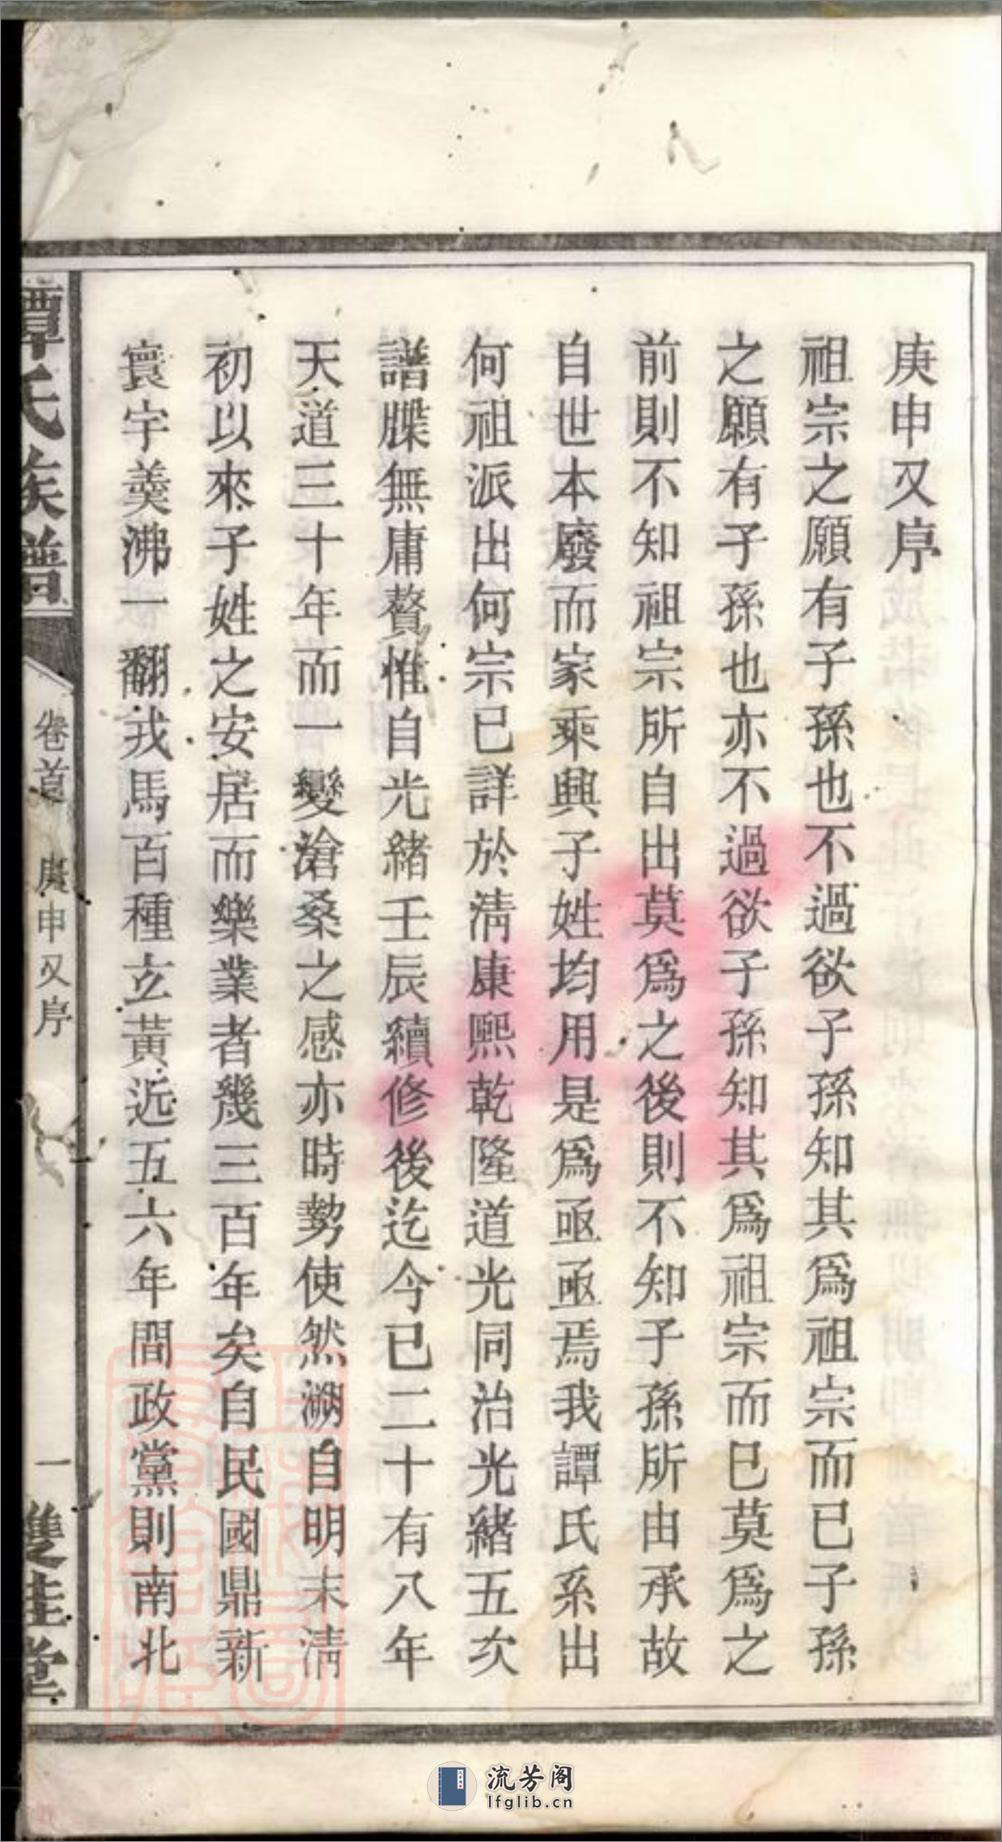 庚申又序
祖宗之願有子孫也不過欲子孫知其爲祖宗而已子孫
之願有子孫也亦不過欲子孫知其爲祖宗而已莫爲之
前則不知祖宗所自出莫爲之後則不知子孫所由承故
自世本廢而家乘興子姓均用是爲亟亟焉我譚氏系出
何祖派出何宗已詳於淸康熙乾隆道光同治光緒五次
譜牒無庸贅惟自光緒壬辰續修後迄今已二十有八年
天道三十年而一變滄桑之感亦時勢使然溯自明末淸
初以來子姓之安居而樂業者幾三百年矣自民國鼎新
寰宇羹沸一翻戎馬百種玄黃近五六年間政黨則南北
譚氏族譜
卷首
庚申又序
一
雙桂堂
流芳阁
lfglib.cn